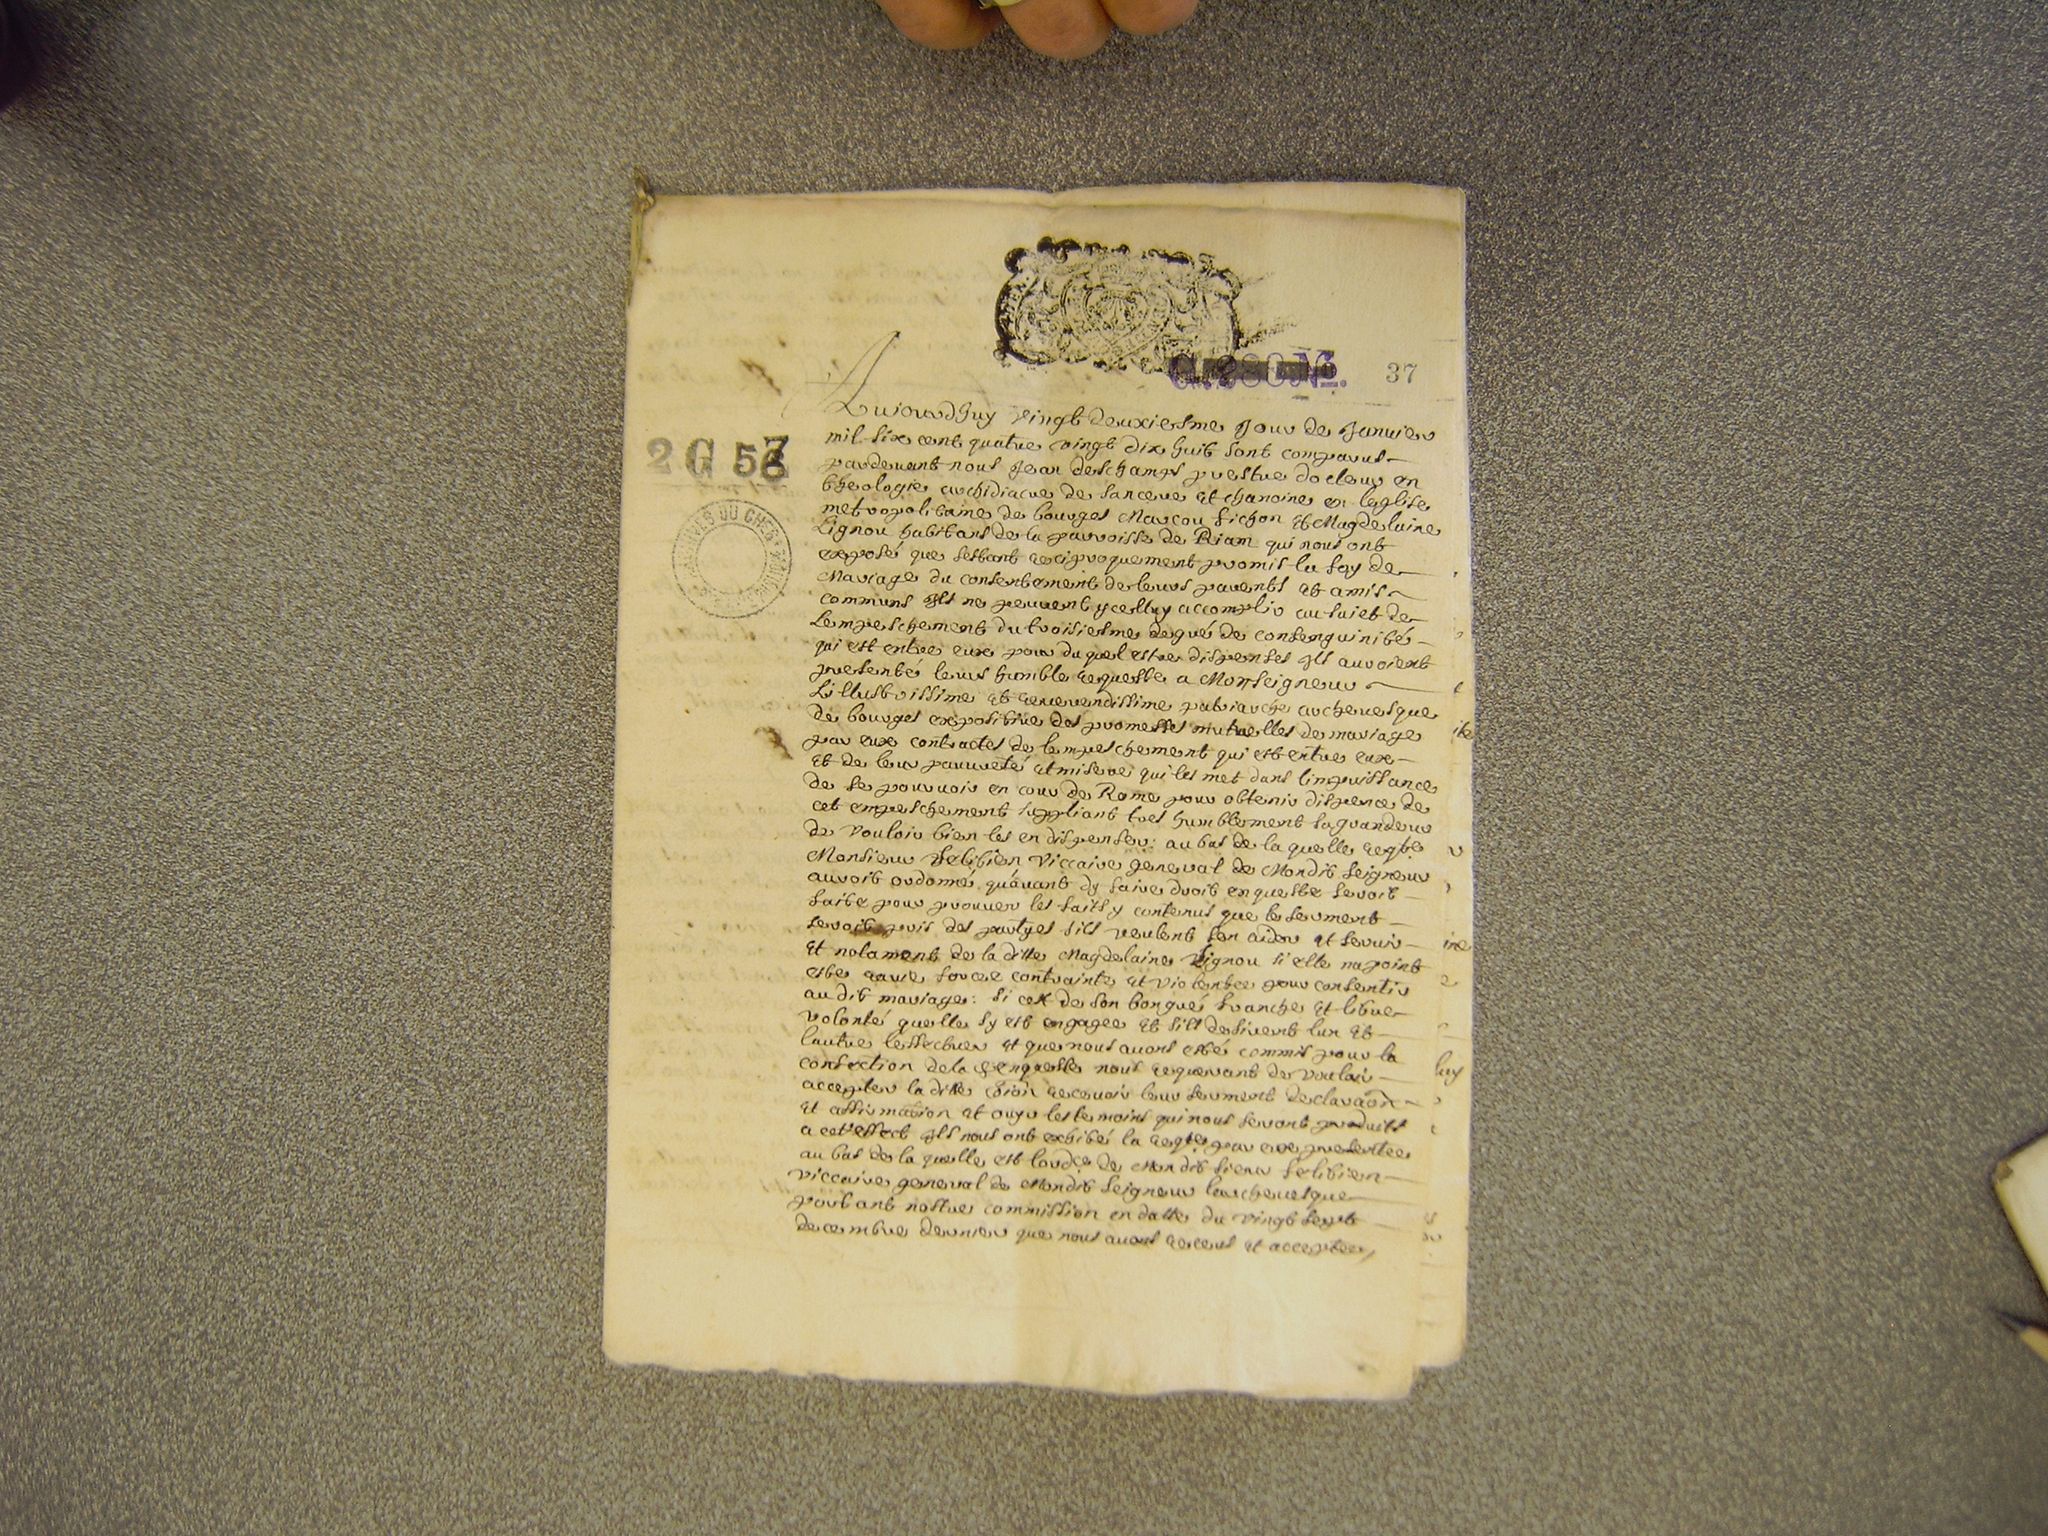 G. 280 N6.
37
2 G 57
ARCHIVES DU CHER
Aujourdhuy vingt deuxiesme Jour de Janvier
mil six cent quatre vingt dix huit sont comparus
pardevant nous Jean deschamps prestre docteur en
theologie archidiacre de sancerre et chanoine en leglise
metropolitaine de bourges Marcou fichon et Magdelaine
Lignou habitans de la parroisse de Riam qui nous ont
exposé que sestant reciproquement promis la foy de
Mariage du consentement de leurs parents et amis
communs Ils ne peuvent ycelluy accomplir au suiet de
Lempeschement du troisiesme degré de consenguinité
qui est entre eux pour du quel estre dispenses Ils auroient
presenté leur humble requeste a Monseigneur
Lillustrissime et reverendissime patriarche archevesque
de bourges expositive des promesses mutuelles de mariage
par eux contractes de lempeschement qui est entre eux
et de leur pauvreté et misere qui les met dans limpuissance
de se pourvoir en cour de Rome pour obtenir dispence de
cet empeschement suppliant tres humblement sa grandeur
de vouloir bien les en dispenser: au bas de la quelle reqte
Monsieur Felibien Viccaire general de Mondit seigneur
auroit ordonné quavant dy faire droit enqueste seroit
faite pour prouver les faits y contenus que le serment
seroit pris des partyes sils veulent sen aider et servir
et notament de la ditte Magdelaine Lignou si elle na point
este ravie forcee contrainte et violentee pour consentir
au dit mariage: si cest de son bon gré franche et libre
volonté quelle sy est engagee et sils desirent lun et
lautre leffectuer et que nous avons esté commis pour la
confection de la de enqueste nous requerant de vouloir
accepter la ditte Cōion recevoir leur serment declaraōn
et affirmation et ouyr les temoins qui nous seront produits
a cet effect Ils nous ont exhibé la reqte par eux presentee
au bas de la quelle est lordce de Mondit sieur felibien
viccaire general de Mondit seigneur larchevesque
portant nostre commission en datte du vingt sept
decembre dernier que nous avons receus et acceptee,